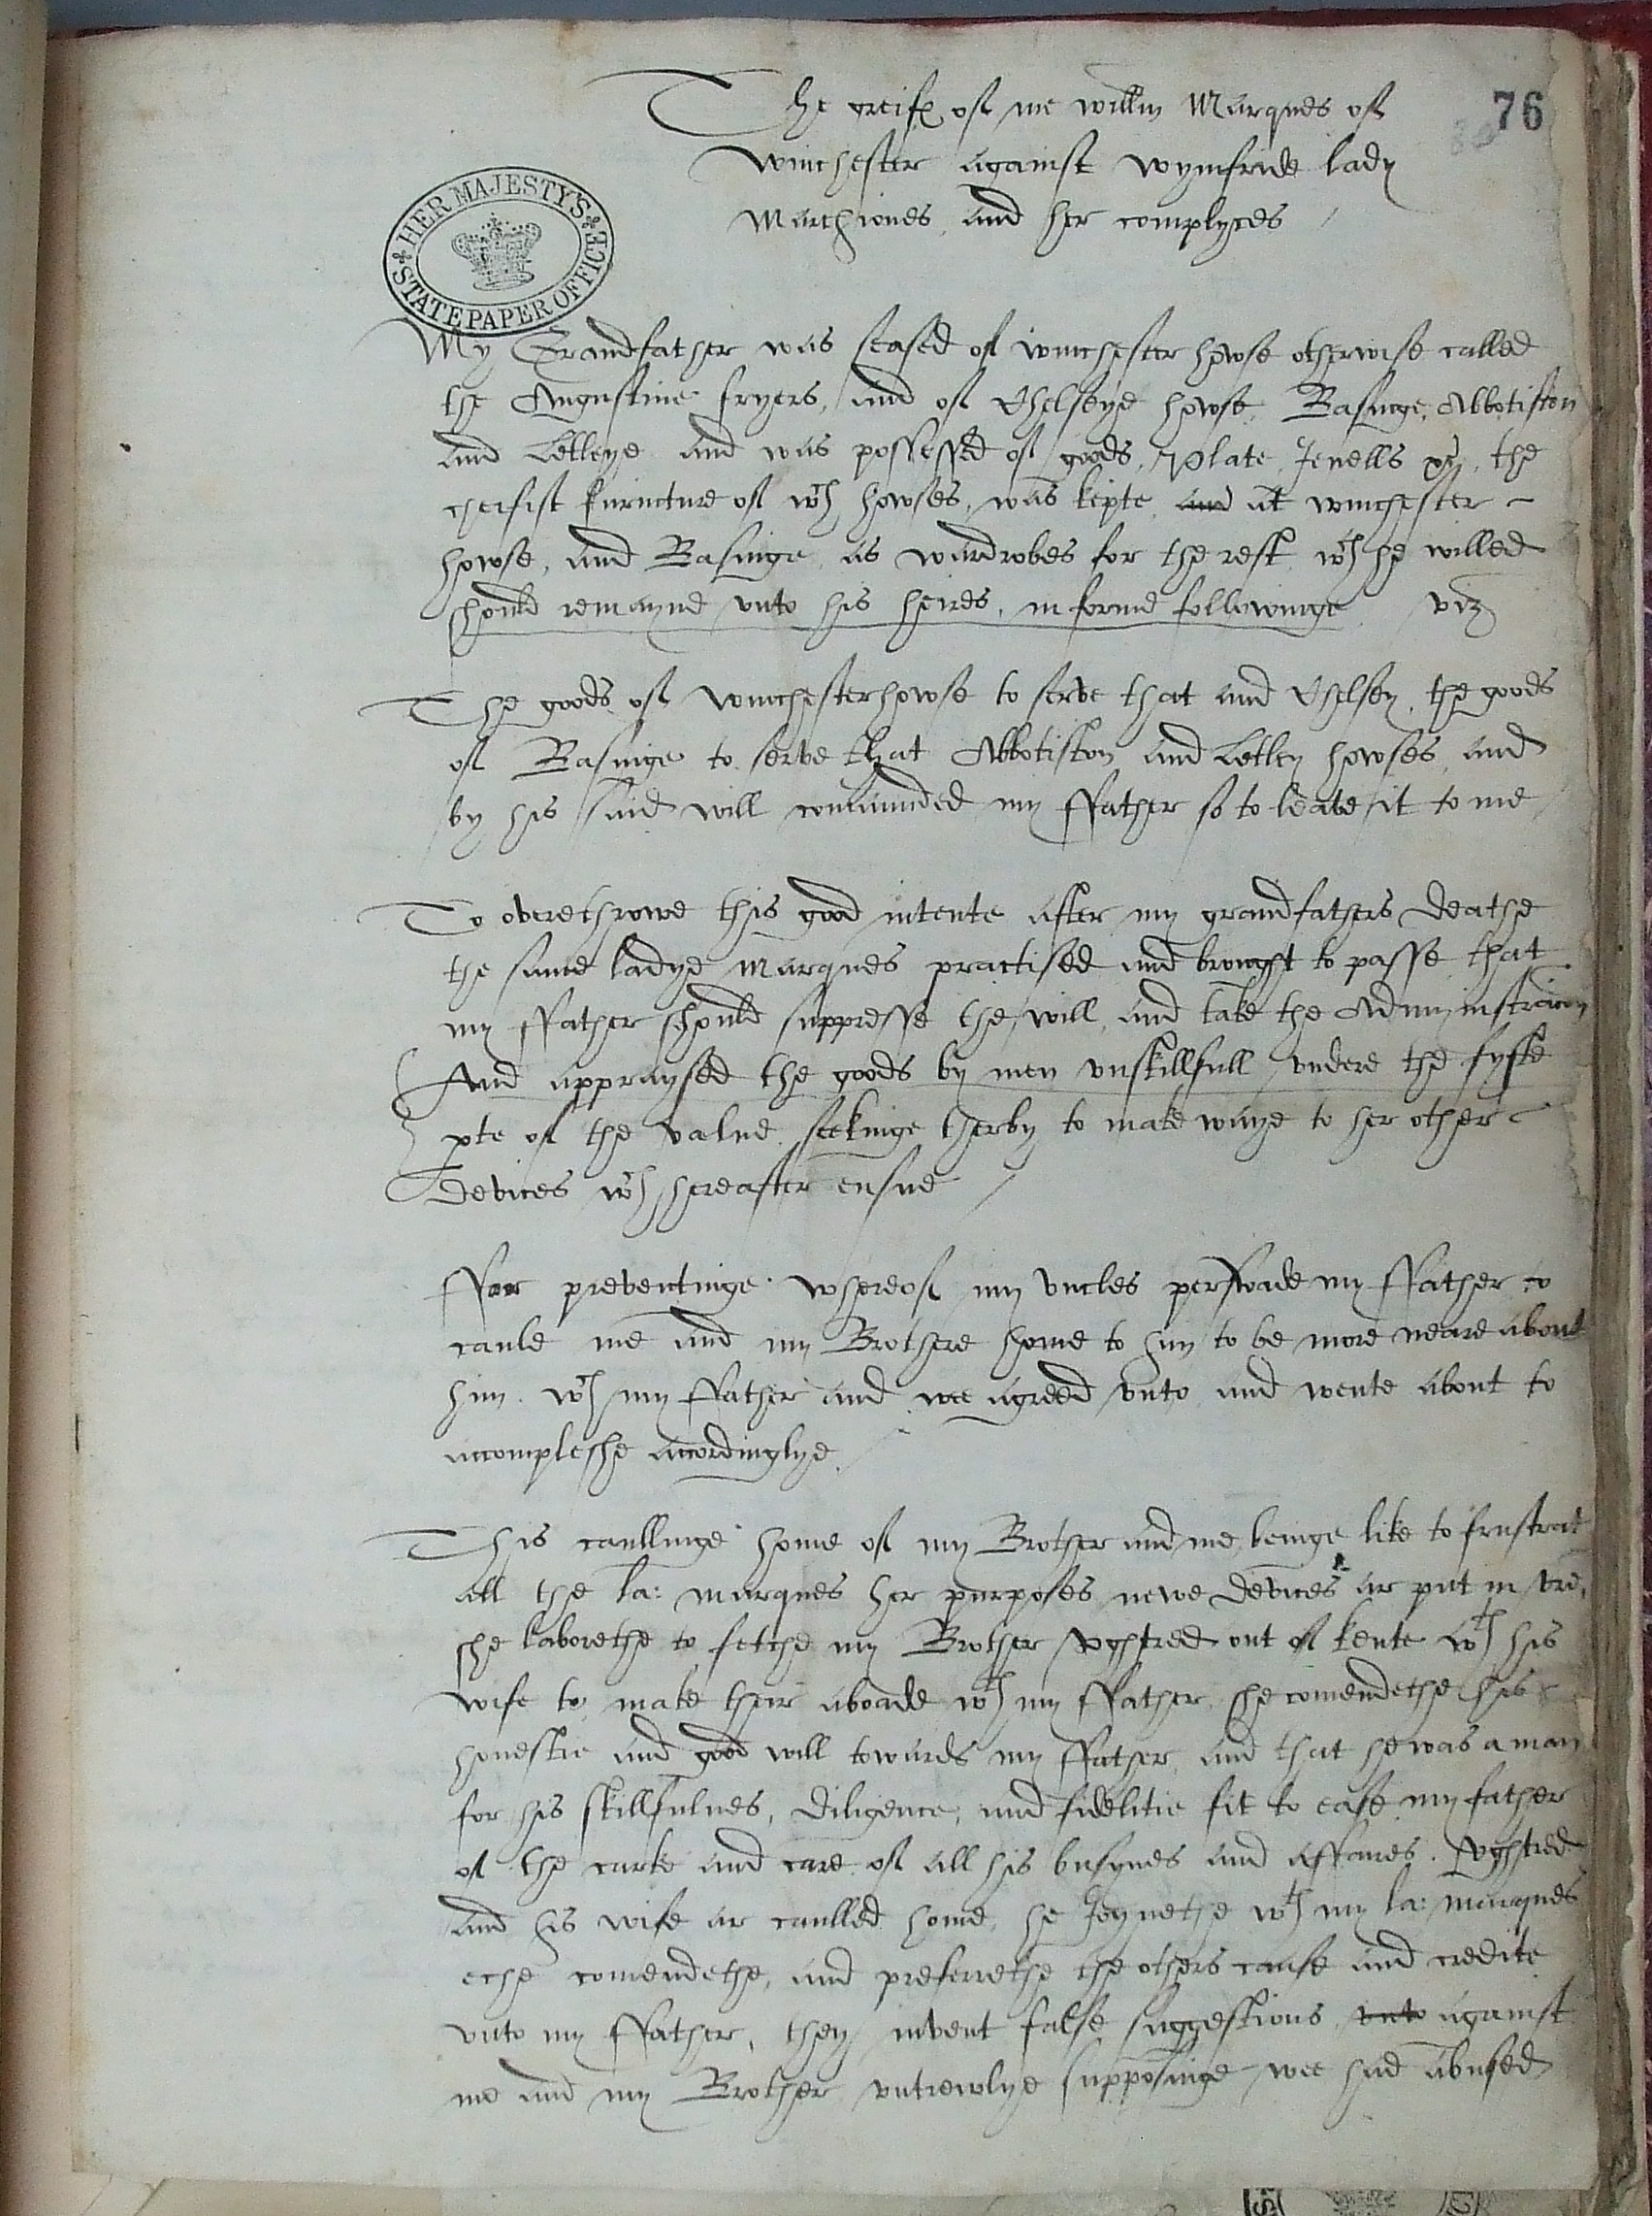 The greifes of me Willm Marques of
76
Winchester against Wynifride lady
Marchiones and her complyces
HER MAJESTY'S STATE PAPER OFFICE
My Grandfather was seased of winchester howse otherwise called
the Augustine fryers, and of Chelseye howse, Basinge, Abbotiston
and Letleye and was possessed of goods, Plate, Jewells &c, the
cheifist furnicture of wch howses, was kepte and at winchester
howse, and Basinge as wardrobes for the rest wch he willed
should remayne vnto his heires, in forme followinge viz
The goods of winchesterhowse to serve that and Chelsey, the goods
of Basinge to serve that Abbotiston and Letley howses, and
by his said will comaunded my ffather so to leave it to me
To overethrowe this good intente after my grandfathers deathe
the same ladye Marques practised and browght to passe that
my ffather should suppresse the will, and take the Administracon
And appraysed the goods by men vnskillfull vndere the fyfte
pte of the value seekinge therby to make waye to her other
devices wch hereafter ensue
ffor preventinge whereof my vncles perswade my ffather to
caule me and my Brothere home to him to be more neare about
him. wch my ffather and wee agreed vnto and wente about to
accompleshe accordinglye
This caullinge home of my Brother and me, beinge like to frustrat
all the La: Marques her purposes newe devices ar put in vre,
she laborethe to fetche my Brother Vghtred out of kente wth his
wife to make their aboade wth my ffather, she comendethe his
honestie and good will towards my ffather and that he was a man
for his skillfulnes, diligence, and fidelitie fit to ease my father
of the carke and care of all his busynes and affaires. Vghtred
and his wife ar caulled home, he Joynethe wth my La: Marques
eche comendethe, and preferrethe the others cause and credite
vnto my ffather, they invent false suggestions vnto against
me and my Brother vntrewlye supposinge wee had abused